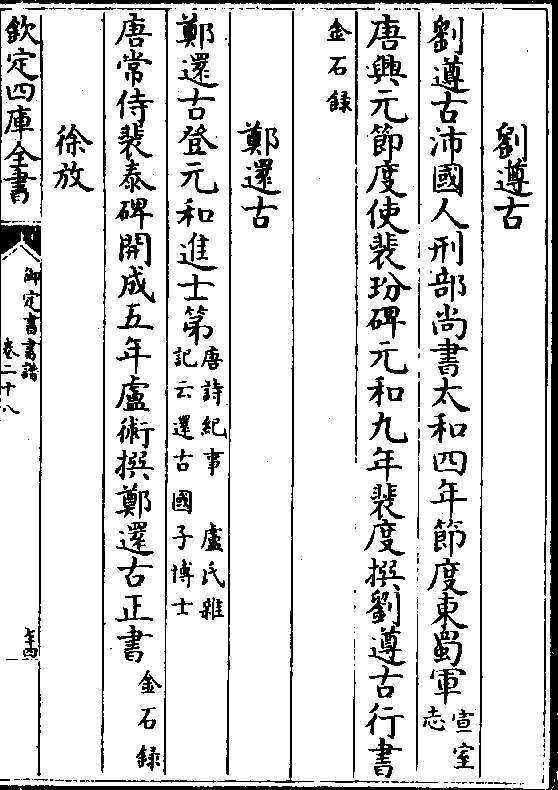 劉遵古
劉遵古沛國人刑部尚書太和四年節度東蜀軍宣室志
唐興元節度使裴玢碑元和九年裴度撰劉遵古行書
金石錄
鄭還古
鄭還古登元和進士第唐詩紀事 盧氏雜記云還古國子博士
唐常侍裴泰碑開成五年盧術撰鄭還古正書金石錄
徐放
欽定四庫全書
御定書畫譜
卷二十八